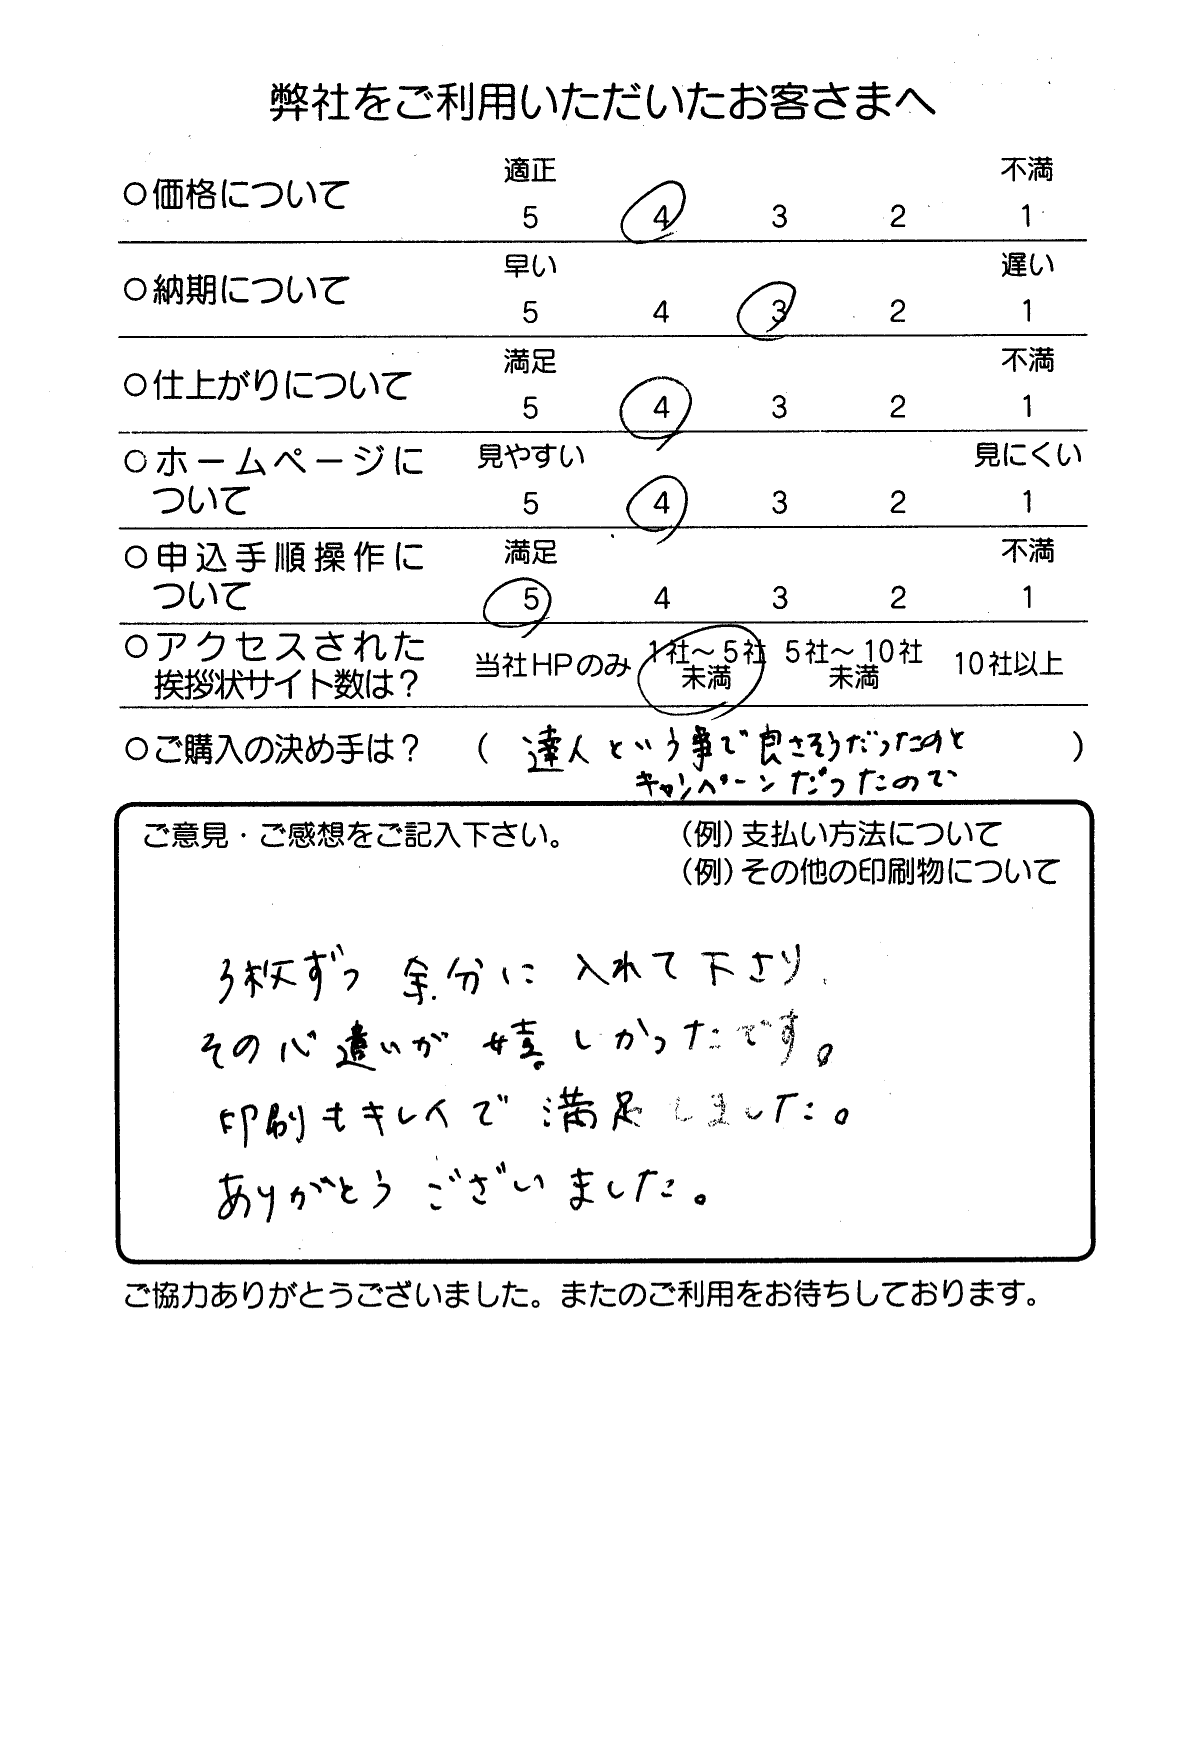 弊社をご利用いただいたお客さまへ
適正 不満
○価格について 5 4 3 2 1
早い 遅い
○納期について 5 4 3 2 1
満足 不満
○仕上がりについて 5 4 3 2 1
○ホームページに 見やすい 見にくい
ついて 5 4 3 2 1
○申込手順操作に 満足 不満
ついて 5 4 3 2 1
○アクセスされた 当社HPのみ 1社～5社 5社～10社 10社以上
挨拶状サイト数は? 未満 未満
○ご購入の決め手は? ( 達人という事で良さそうだったのと )
キャンペーンだったので
ご意見・ご感想をご記入下さい。 (例)支払い方法について
(例)その他の印刷物について
3枚ずつ 余分に 入れて下さり、
その心遣いが 嬉しかったです。
印刷もキレイで 満足しました。
ありがとう ございました。
ご協力ありがとうございました。またのご利用をお待ちしております。